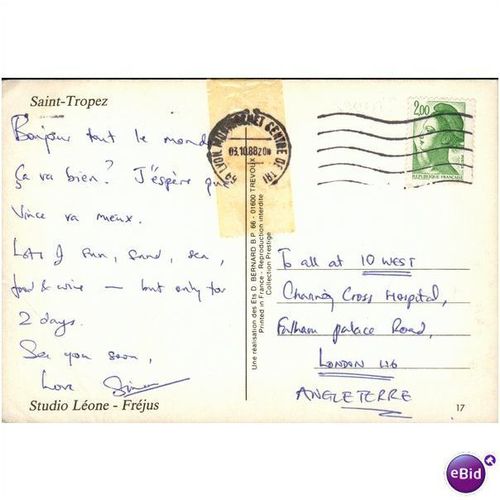 Saint-Tropez
Bonjour tout le monde
Ça va bien? J'espère que
Vince va mieux.
Lots of sun, sand, sea,
food & wine — but only for
2 days.
See you soon,
Love Simon
Studio Léone - Fréjus
69 LYON MONTROCHET CENTRE DE TRI
03.10.88 20H
Une réalisation des Ets D. BERNARD B.P. 66 - 01600 TREVOUX
Printed in France - Reproduction interdite
Collection Prestige
2,00
REPUBLIQUE FRANÇAISE
To all at 10 WEST
Charing Cross Hospital,
Fulham palace Road,
LONDON W6
ANGLETERRE
17
eBid